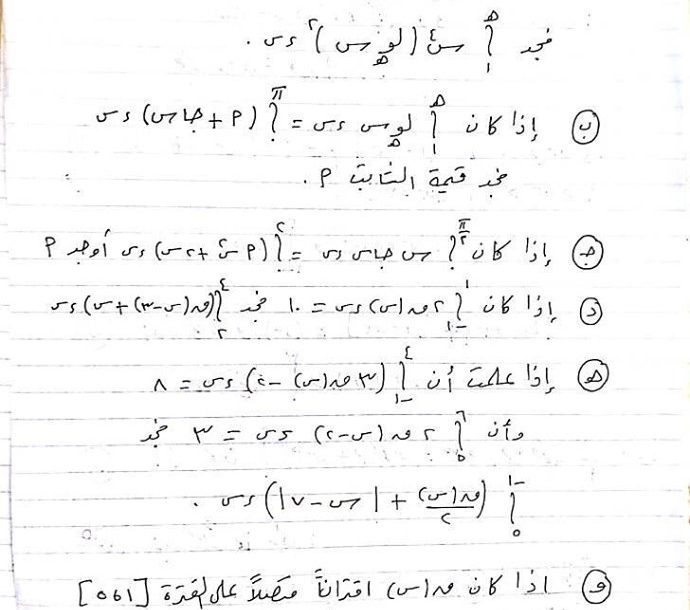 فجد ∫₁^هـ س٤ (لو_هـ س)٢ ءس .
ب) إذا كان ∫₁^هـ لو_هـ س ءس = ∫^π (٢ + جاس) ءس
جد قيمة الثابت ٢ .
جـ) إذا كان ∫^(π/٢) س جاس ءس = ∫^٢ (٢س٢ + ٢س) ءس أوجد ٢
د) إذا كان ∫₋١^١ ٢ ق(س) ءس = ١٠ فجد ∫₂^٤ (ق(س-٣) + س) ءس
هـ) إذا علمت أن ∫₋١^٤ (٣ ق(س) - ٤) ءس = ٨
وأن ∫₅^٦ ٢ ق(س-٢) ءس = ٣ جد
∫₅^-١ (ق(س)/٢ + |س - ٧|) ءس .
و) اذا كان ق(س) اقتراناً متصلاً على الفترة [٥،١]